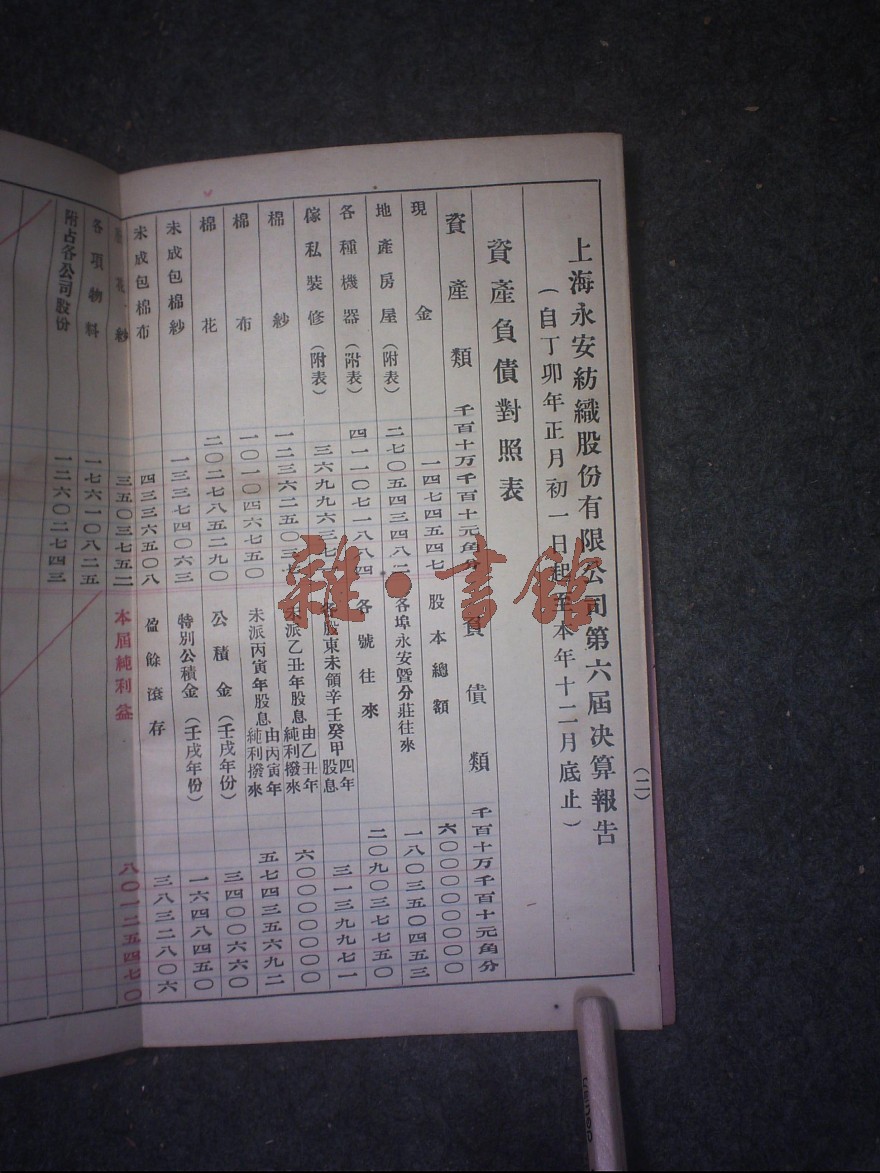 (二)
上海永安紡織股份有限公司第六屆决算報告
(自丁卯年正月初一日起至本年十二月底止)
資產負債對照表
資產類 千百十万千百十元角分
現金 一四七四五四七
地產房屋(附表) 二七〇五四三四八二
各種機器(附表) 四一一〇七一八八四
傢私裝修(附表)
棉紗
棉布 一〇一〇四六七五〇
棉花 二〇二七八五二九〇
未成包棉紗 一三三七四〇六三
未成包棉布 四三三六五〇八
三五〇三七五二
各項物料 一七六一〇八二五
附占各公司股份 一二六〇二七四三
負債類 千百十万千百十元角分
股本總額 六〇〇〇〇〇〇〇〇
各埠永安暨分莊往來 一八〇三五〇四五三
各號往來 二〇九〇三七七五〇
各股東未領辛壬癸甲四年股息 三一三九九七一
未派乙丑年股息由乙丑年純利撥來 六〇〇〇〇〇〇〇
未派丙寅年股息由丙寅年純利撥來 五七四三五六九二
公積金(壬戌年份) 三四〇〇六六〇
特別公積金(壬戌年份) 一六四八四五〇
盈餘滾存 三八三二八〇六
本屆純利益 八〇一二五四七〇
雜·書館